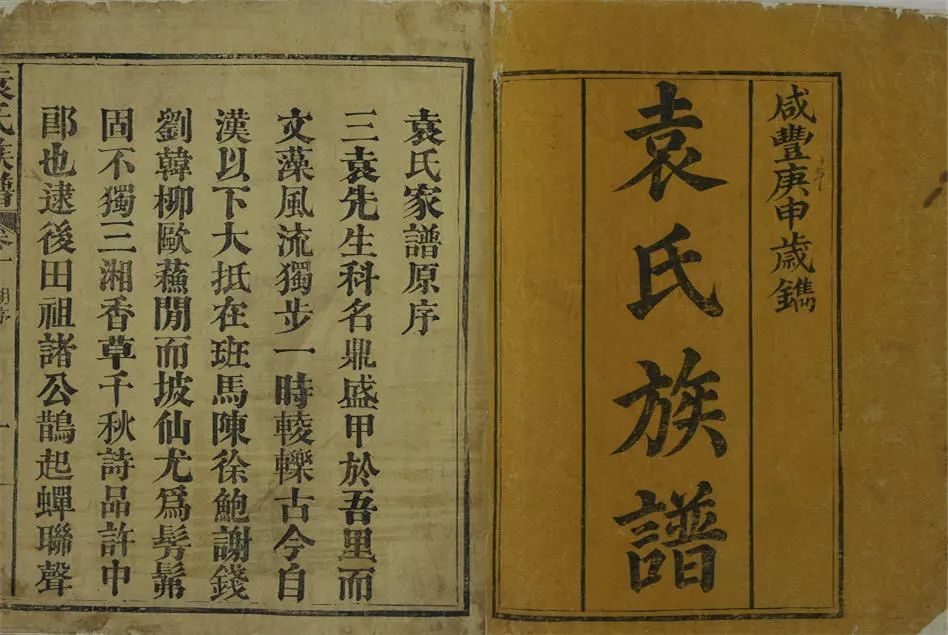 咸豐庚申歲鐫
袁氏族譜
袁氏家譜原序
三袁先生科名鼎盛甲於吾里而
文藻風流獨步一時輘轢古今自
漢以下大抵在班馬陳徐鮑謝錢
劉韓柳歐蘓閒而坡仙尤爲髣髴
固不獨三湘香草千秋詩品許中
郎也逮後田祖諸公鵲起蟬聯聲
袁氏族譜 卷一 序 一